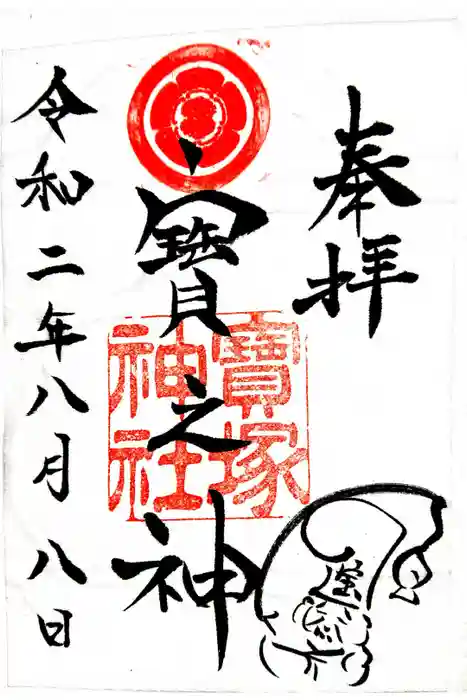 奉拝
寳之神
寶塚
神社
令和二年八月八日